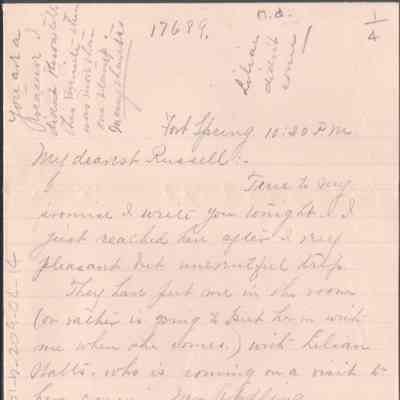 n.d.
1/4
17689.
You are a
treasure! I
didnt know till
this minute there
was more than
one stamp!
Many thanks
Lilian
didn't
come!
Fort Spring 10:20 P.M
My dearest Russell:-
True to my
promise I write you tonight. I
just reached here after a very
pleasant but uneventful trip.
They have put me in the room
(or rather is going to put her in with
me when she comes.) with Lilian
Watts. who is coming on a visit to
her cousin